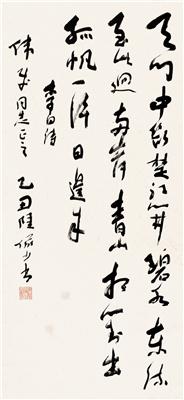 天门中断楚江开碧水东流
至此迴两岸青山相对出
孤帆一片日边来
李白诗
同志正之
乙丑陆俨少书